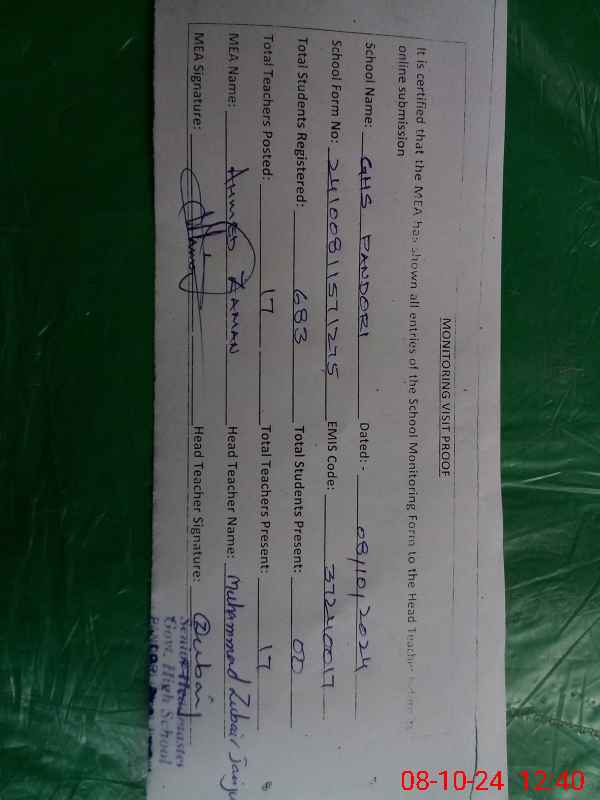 MONITORING VISIT PROOF
It is certified that the MEA has shown all entries of the School Monitoring Form to the Head Teacher before its
online submission
School Name: GHS PANDORI Dated: - 08/10/2024
School Form No: 24100811571275 EMIS Code: 37240017
Total Students Registered: 683 Total Students Present: 00
Total Teachers Posted: 17 Total Teachers Present: 17
MEA Name: AHMED ZAMAN Head Teacher Name: Muhammad Zubair
MEA Signature: Head Teacher Signature: Zubair
Senior Headmaster
Govt. High School
08-10-24 12:40